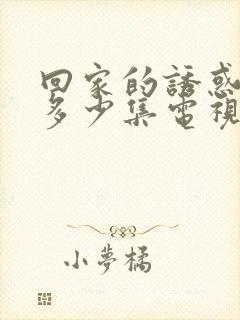 回家的誘惑
多少集電視
小夢橘